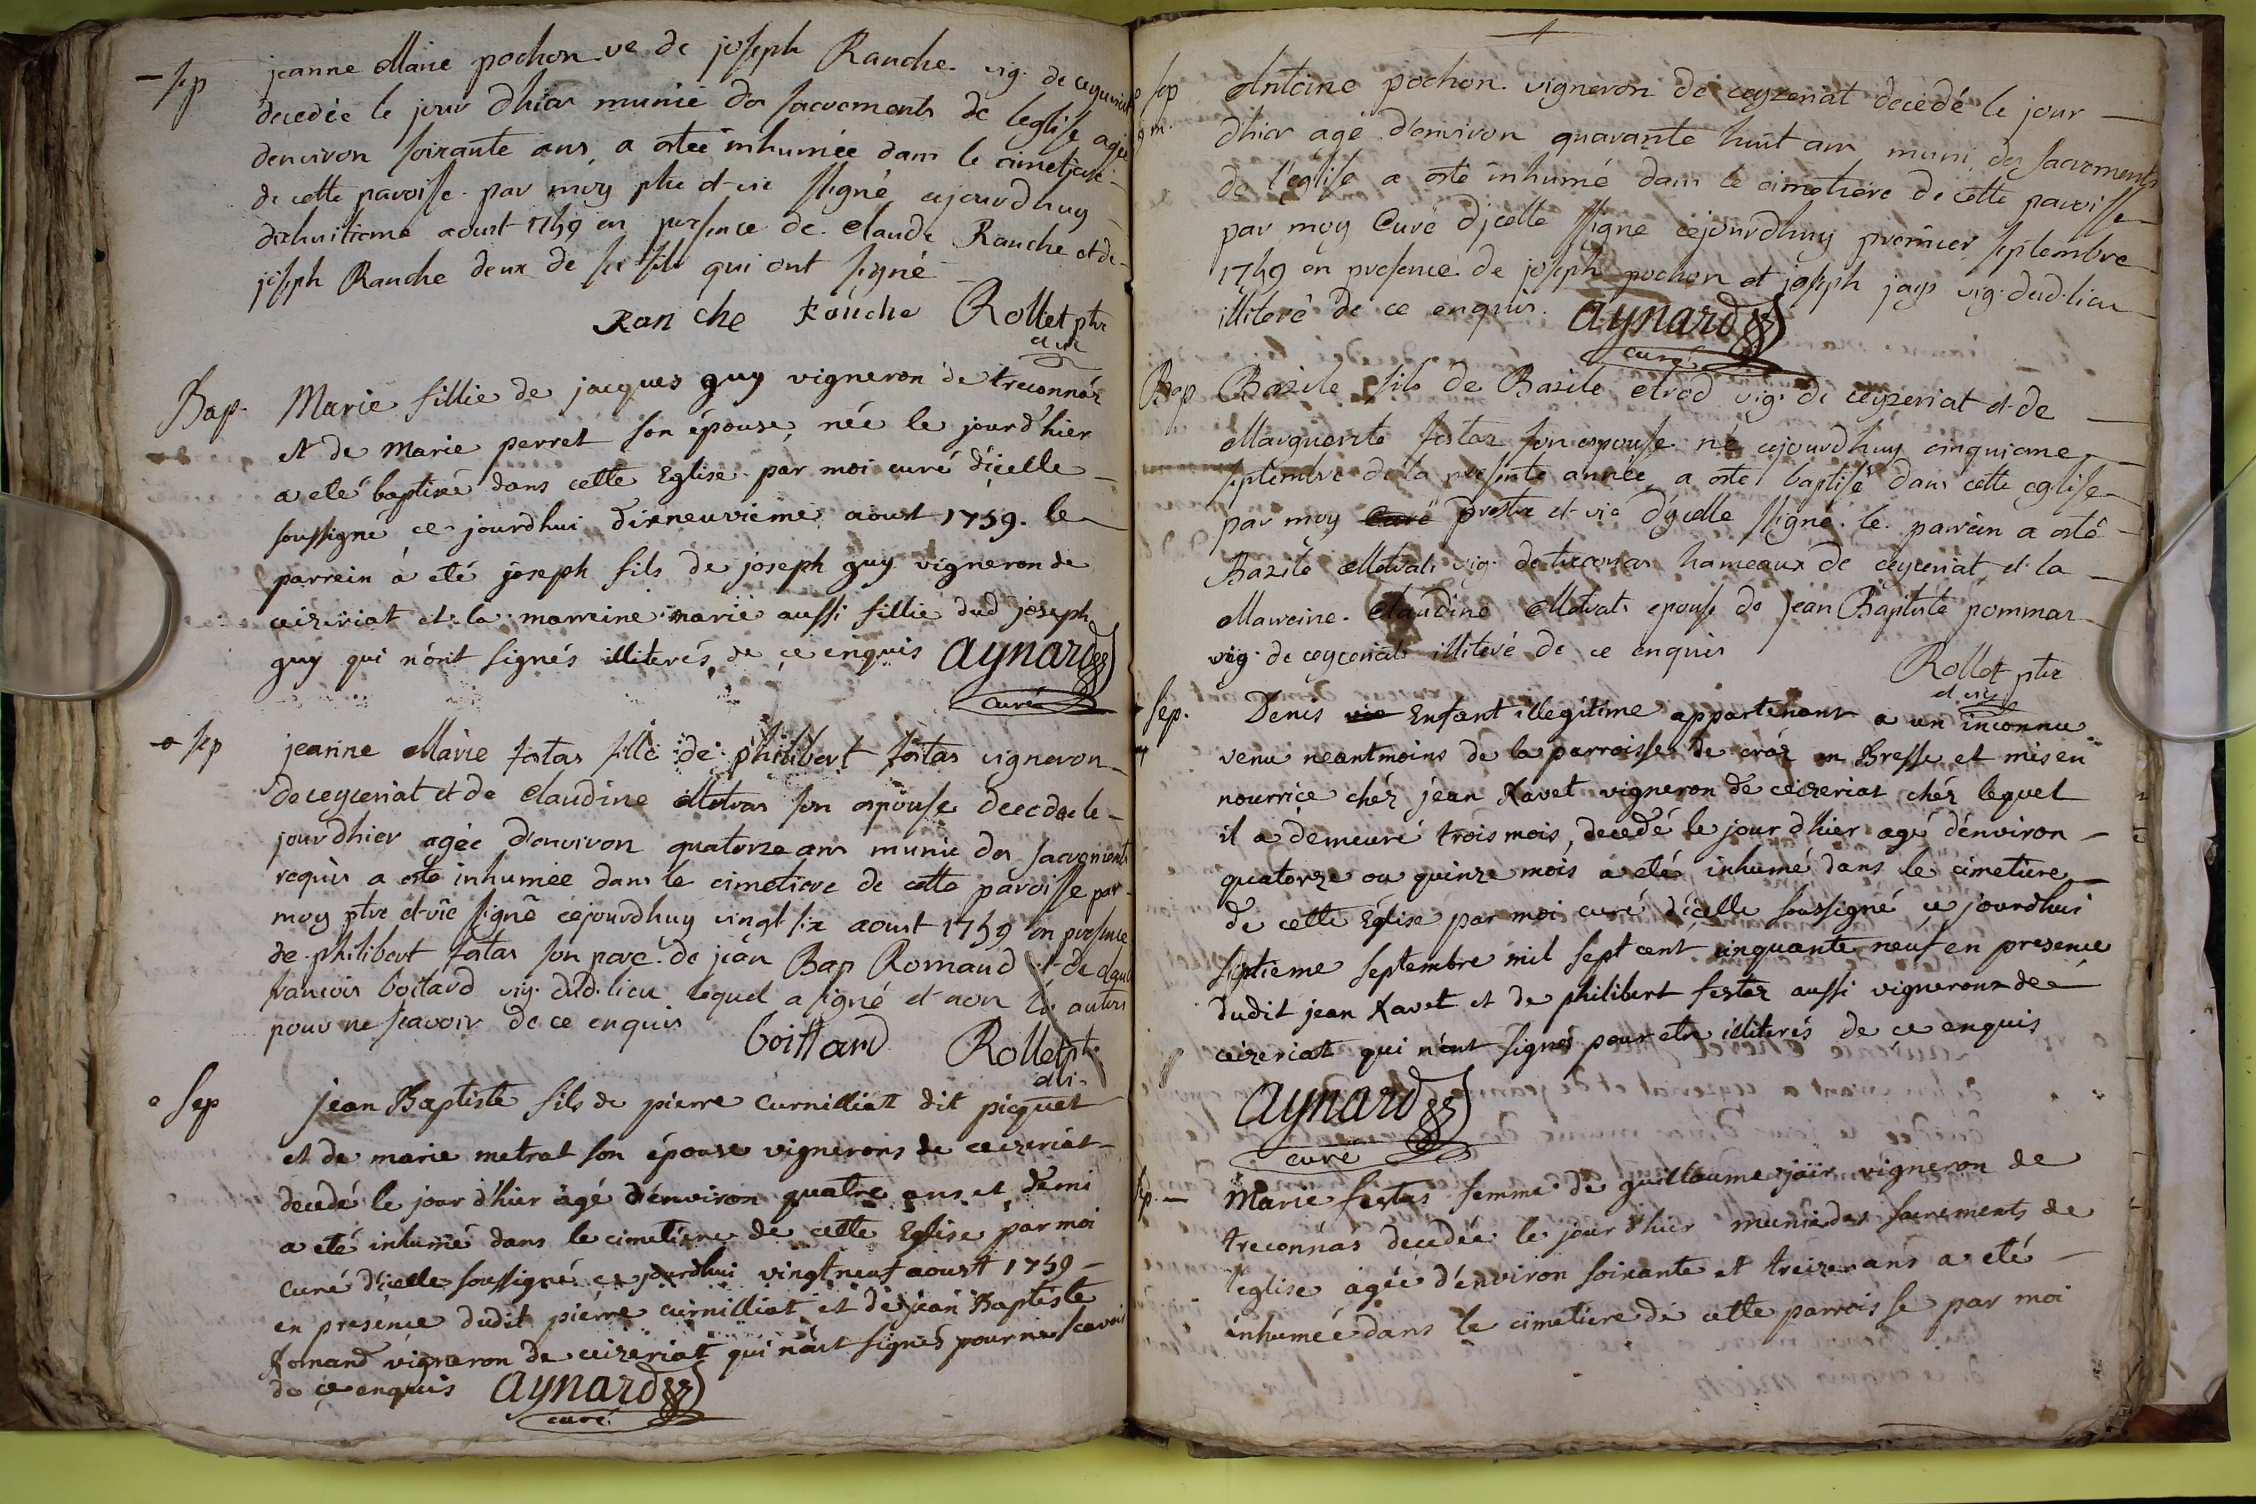 - sep
jeanne Marie pochon ve de joseph Ranche vig. de ceyzeriat
decedée le jour d'hier munie des sacrements de leglise agée
denviron soixante ans a esté inhumée dans le cimetiere
de cette paroisse par moy ptre et vic ssigné cejourdhuy
dixhuitieme aoust 1759 en presence de Claude Ranche et de
joseph Ranche deux de ses fils qui ont signé
Ranche Rouche Rollet ptre
et vic
Bap. Marie fillie de jacques guy vigneron de treconnaz
et de Marie perret son épouse, née le jourd'hier
a eté baptisé dans cette Eglise par moi curé d'icelle
soussigné ce jourdhui dixneuvième aoust 1759. le
parrein a eté joseph fils de joseph guy vigneron de
ceizeriat et la marreine marie aussi fillie dud joseph
guy qui n'ont signés illiterés de ce enquis aynard
curé
sep jeanne Marie festas fille de philibert festas vigneron
de ceyceriat et de Claudine Metras son espouse decedée le
jourdhier agée d'environ quatorze ans munie des sacrements
requis a esté inhumée dans le cimetiere de cette paroisse par
moy ptre et vic signé cejourdhuy vingt six aoust 1759 en presence
de philibert festas son pere de jean Bap Romand et de
francois boitard vig. dud. lieu lequel a signé et non les autres
pour ne scavoir de ce enquis boittard Rollet pt.
et vi.
Sep jean Baptiste fils de pierre Curnilliat dit picquet
et de marie metrat son épouse vignerons de ceizeriat
decedé le jour d'hier âgé d'environ quatre ans et demi
a eté inhumé dans le cimetiere de cette Eglise par moi
curé d'icelle soussigné ce jourdhui vingt neuf aoust 1759
en presence dudit pierre curnilliat et de jean Baptiste
Romand vigneron de ceizeriat qui n'ont signés pour ne scavoir
de ce enquis aynard
curé
sep Antoine pochon vigneron de ceyzeriat decedé le jour
dhier agé d'environ quarante huit ans muni des sacrements
de l'eglise a esté inhumé dans le cimetiere de cette paroisse
par moy Curé d'jcelle ssigné cejourdhuy premier septembre
1759 en presence de joseph pochon et joseph jays vig. dud. lieu
illiteré de ce enquis. aynard
curé
Bap Bazile fils de Bazile vig. de ceyzeriat et de
Marguerite festaz son espouse né cejourdhuy cinquieme
septembre de la presente année a esté baptisé dans cette eglise
par moy Curé prestre et vic d'ycelle ssigné. le parrein a esté
Bazile Metrat vig. de treconas hameaux de ceyceriat et la
Marreine. Claudine Metrat epouse de jean Baptiste pommar
vig. de ceyceriat illiteré de ce enquis
Rollet ptre
et vic
Sep. Denis vie Enfant illegitime appartenant a un inconnu
venu neantmoins de la parroisse de cráz en Bresse et mis en
nourrice chéz jean Ravet vigneron de ceizeriat chéz lequel
il a demeuré trois mois, decedé le jour d'hier agé d'environ
quatorze ou quinze mois a eté inhumé dans le cimetiere
de cette Église par moi curé d'icelle soussigné ce jourdhui
septieme septembre mil sept cent cinquante neuf en presence
dudit jean Ravet et de philibert festaz aussi vignerons de
ceizeriat qui n'ont signés pour etre illiterés de ce enquis
aynard
curé
Marie festas femme de guillaume vigneron de
treconnas decedée le jour d'hier munie des sacrements de
l'eglise agée d'environ soixante et treize ans a eté
inhumée dans le cimetiere de cette parroisse par moi